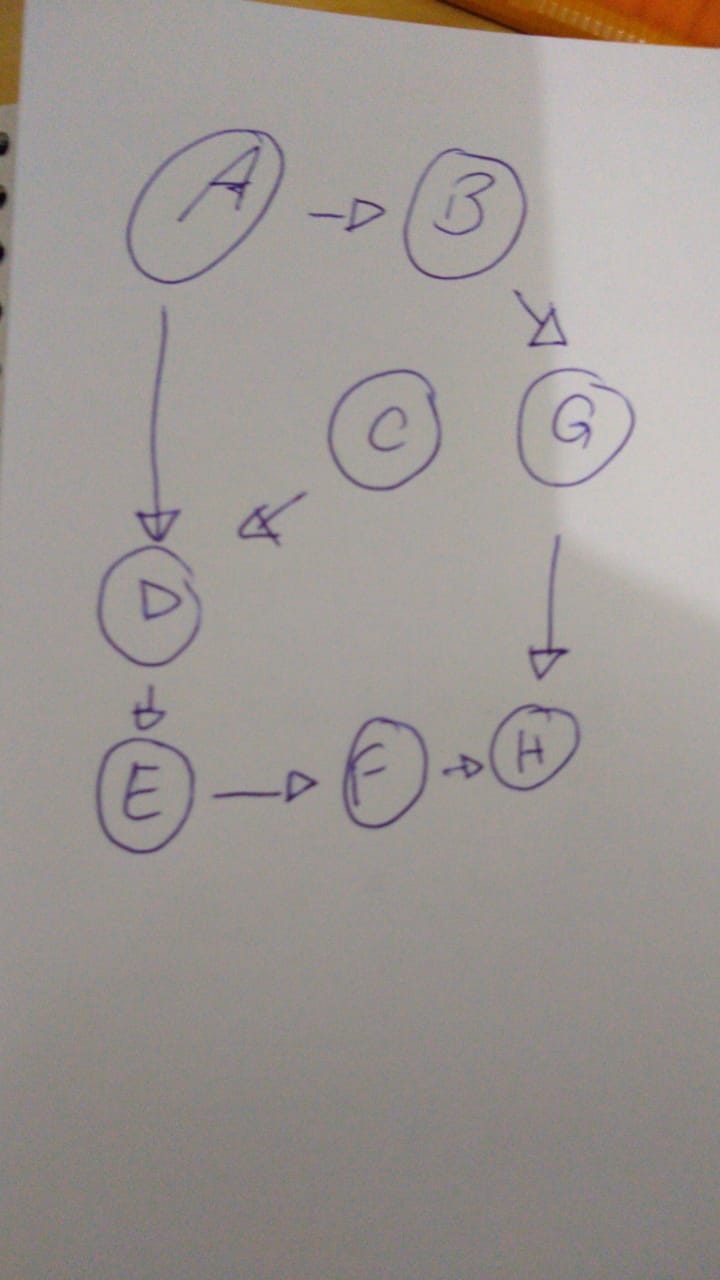 A B
C G
D
E F H